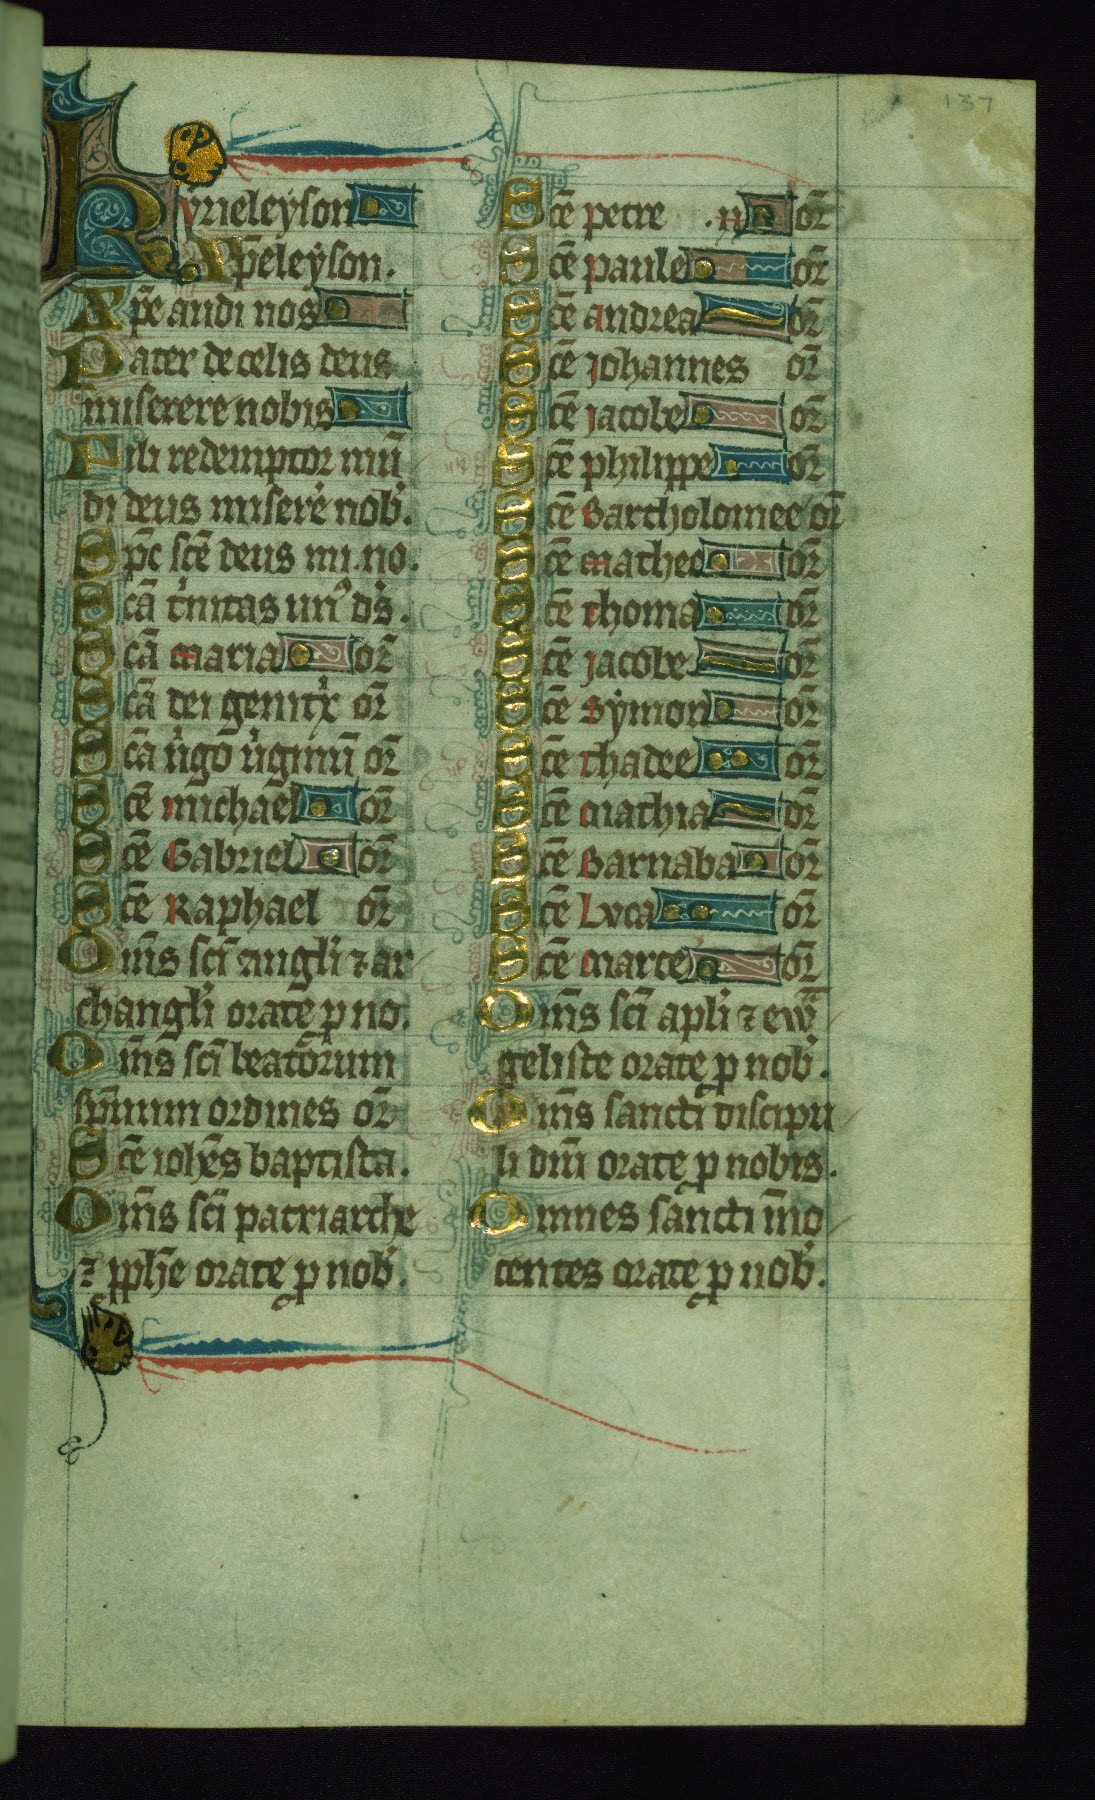 137
Kyrieleyson
Xp̄eleyson.
Xp̄e audi nos
Pater de celis deus
miserere nobis
Fili redemptor mū
di deus miserē nob̾.
Sp̄c sc̄e deus mi. no.
Sc̄a t̾nitas un᷒ dš.
Sc̄a maria or̄
Sc̄a dei genitͥx or̄
Sc̄a v̾go v̾ginū or̄
Sc̄e michael or̄
Sc̄e Gabriel or̄
Sc̄e Raphael or̄
Om̄s sc̄i angl̾i ⁊ ar
changl̾i orate ꝓ no.
Om̄s sc̄i beatōrum
sp̄irituum ordines or̄
Sc̄e ioh̄es baptista.
Om̄s sc̄i patriarche
⁊ ꝓph̄e orate ꝓ nob̾.
Sc̄e petre or̄
Sc̄e paule or̄
Sc̄e andrea or̄
Sc̄e iohannes or̄
Sc̄e iacobe or̄
Sc̄e philippe or̄
Sc̄e Bartholomee or̄
Sc̄e mathee or̄
Sc̄e thoma or̄
Sc̄e iacobe or̄
Sc̄e symon or̄
Sc̄e thadee or̄
Sc̄e mathia or̄
Sc̄e Barnaba or̄
Sc̄e Luca or̄
Sc̄e marce or̄
Om̄s sc̄i apl̾i ⁊ ewā
geliste orate ꝓ nob̾.
Om̄s sancti discipu
li dn̄i orate ꝓ nobis.
Omnes sancti īno
centes orate ꝓ nob̾.